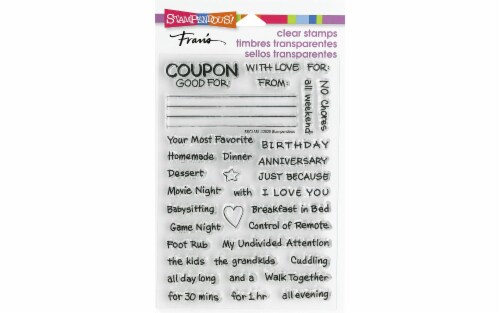 STAMPENDOUS!
Fran's
clear stamps
timbres transparentes
sellos transparentes
COUPON WITH LOVE FOR:
GOOD FOR: FROM:
all weekend
No Chores
Your Most Favorite BIRTHDAY
Homemade Dinner ANNIVERSARY
Dessert JUST BECAUSE
Movie Night with I LOVE YOU
Babysitting Breakfast in Bed
Game Night Control of Remote
Foot Rub My Undivided Attention
the kids the grandkids Cuddling
all day long and a Walk Together
for 30 mins for 1 hr all evening